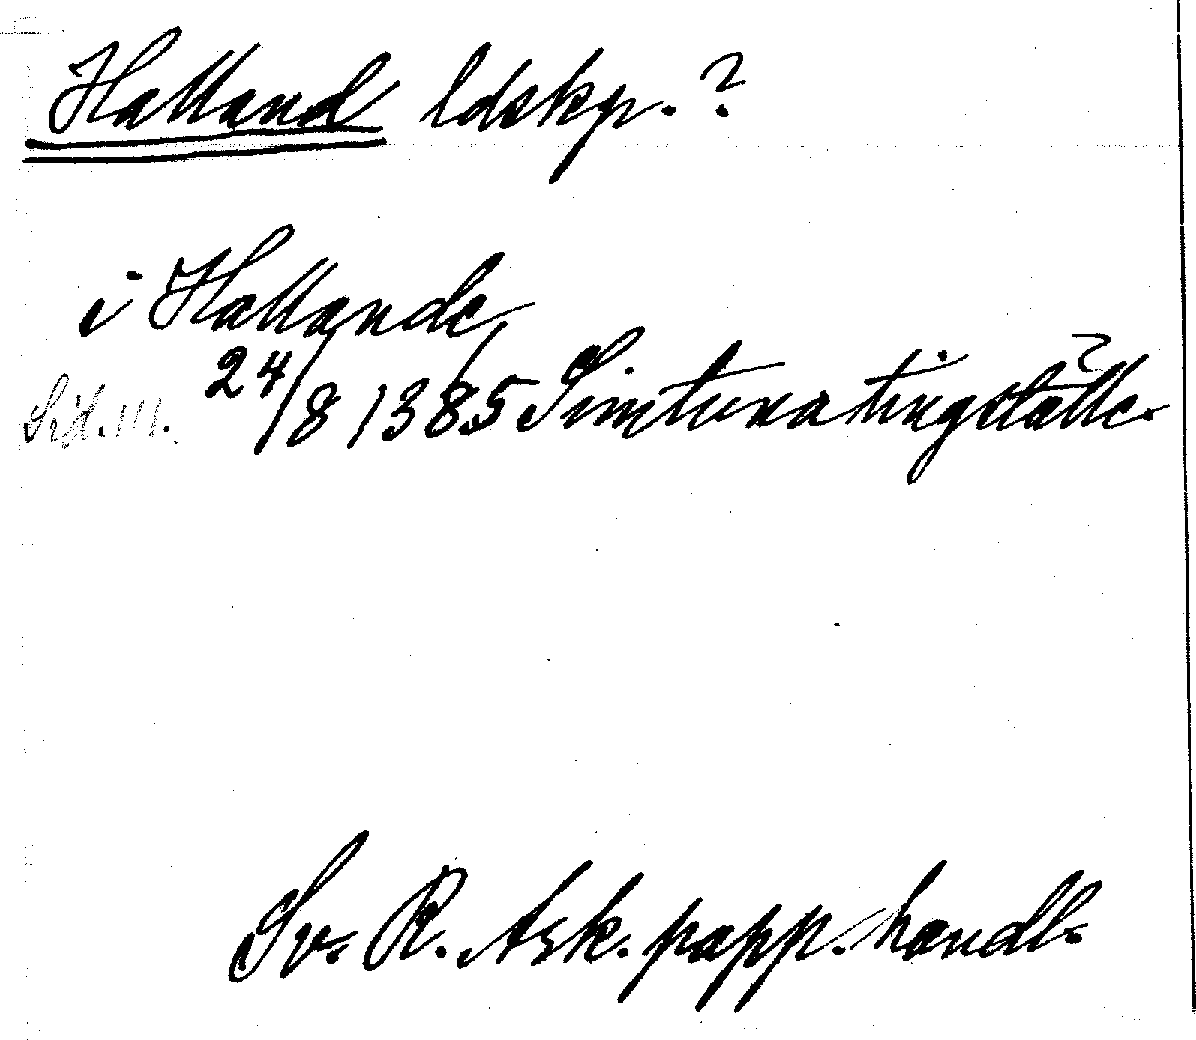 Halland ldskp. ?
i Hallande
Sid. 111. 24/8 1385 Simtuna tingställe
Sv. R. Ark. papp. handl.